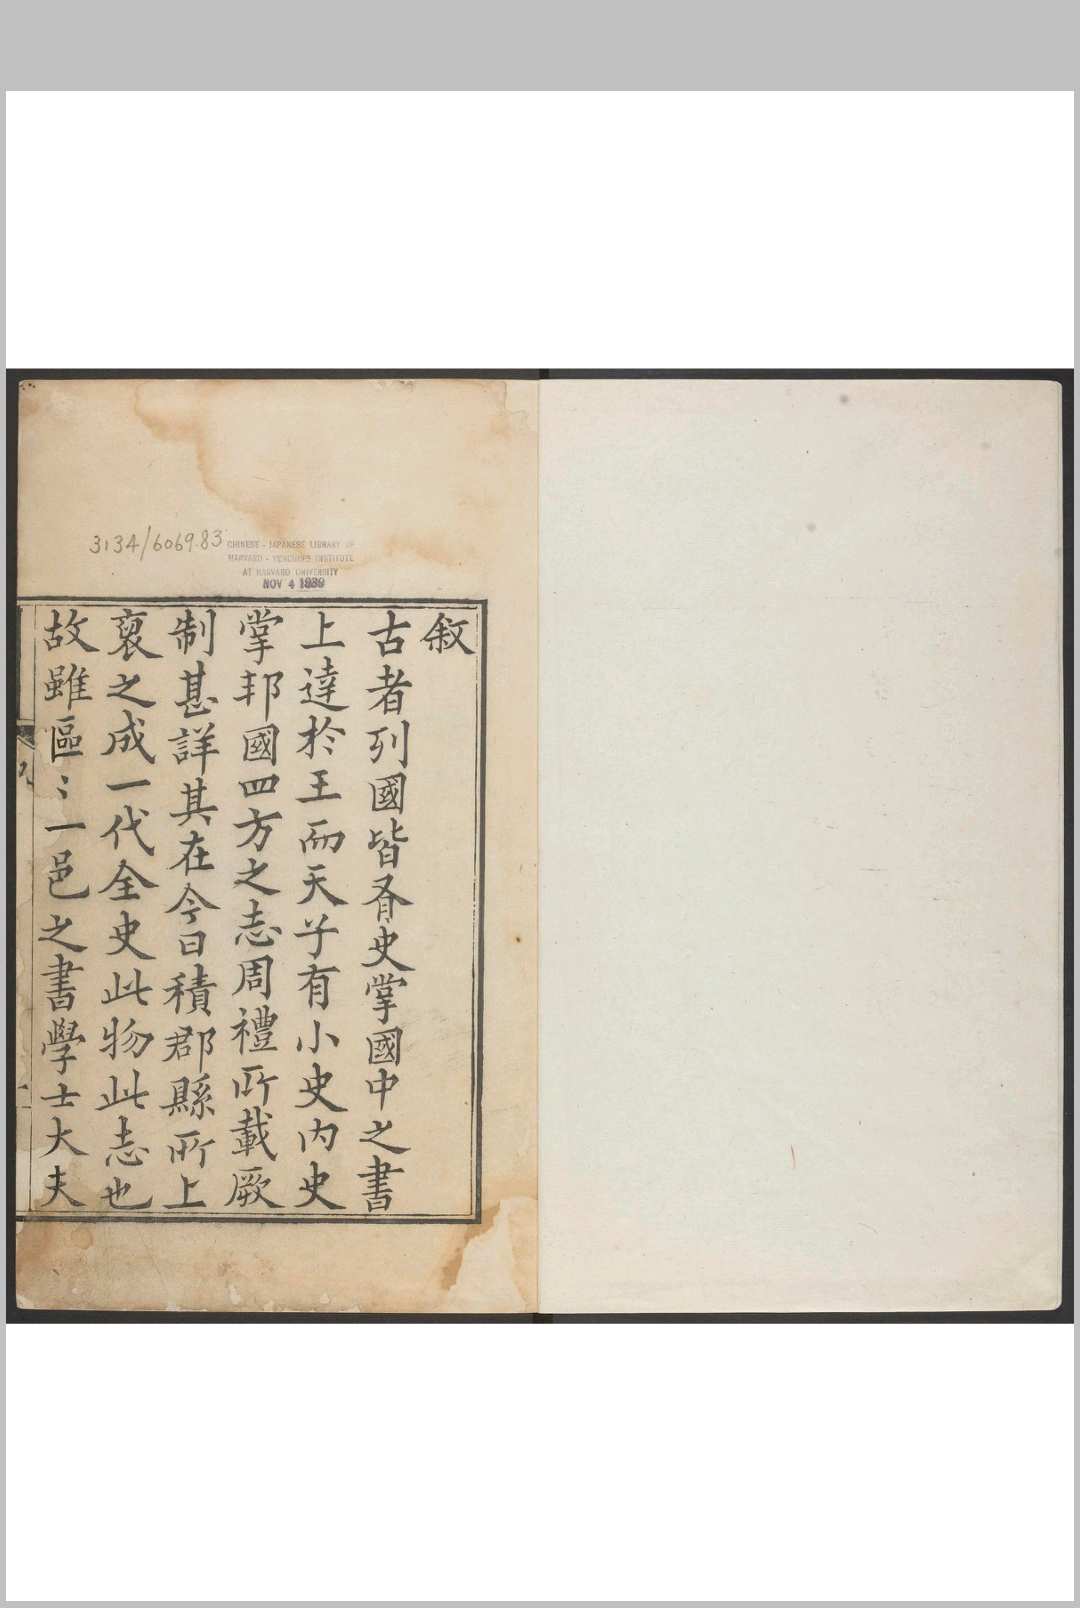 3134/6069.83
CHINESE - JAPANESE LIBRARY OF
HARVARD - YENCHING INSTITUTE
AT HARVARD UNIVERSITY
NOV 4 1939
敘
古者列國皆有史掌國中之書
上達於王而天子有小史內史
掌邦國四方之志周禮所載厥
制甚詳其在今日積郡縣所上
裒之成一代全史此物此志也
故雖區〻一邑之書學士大夫